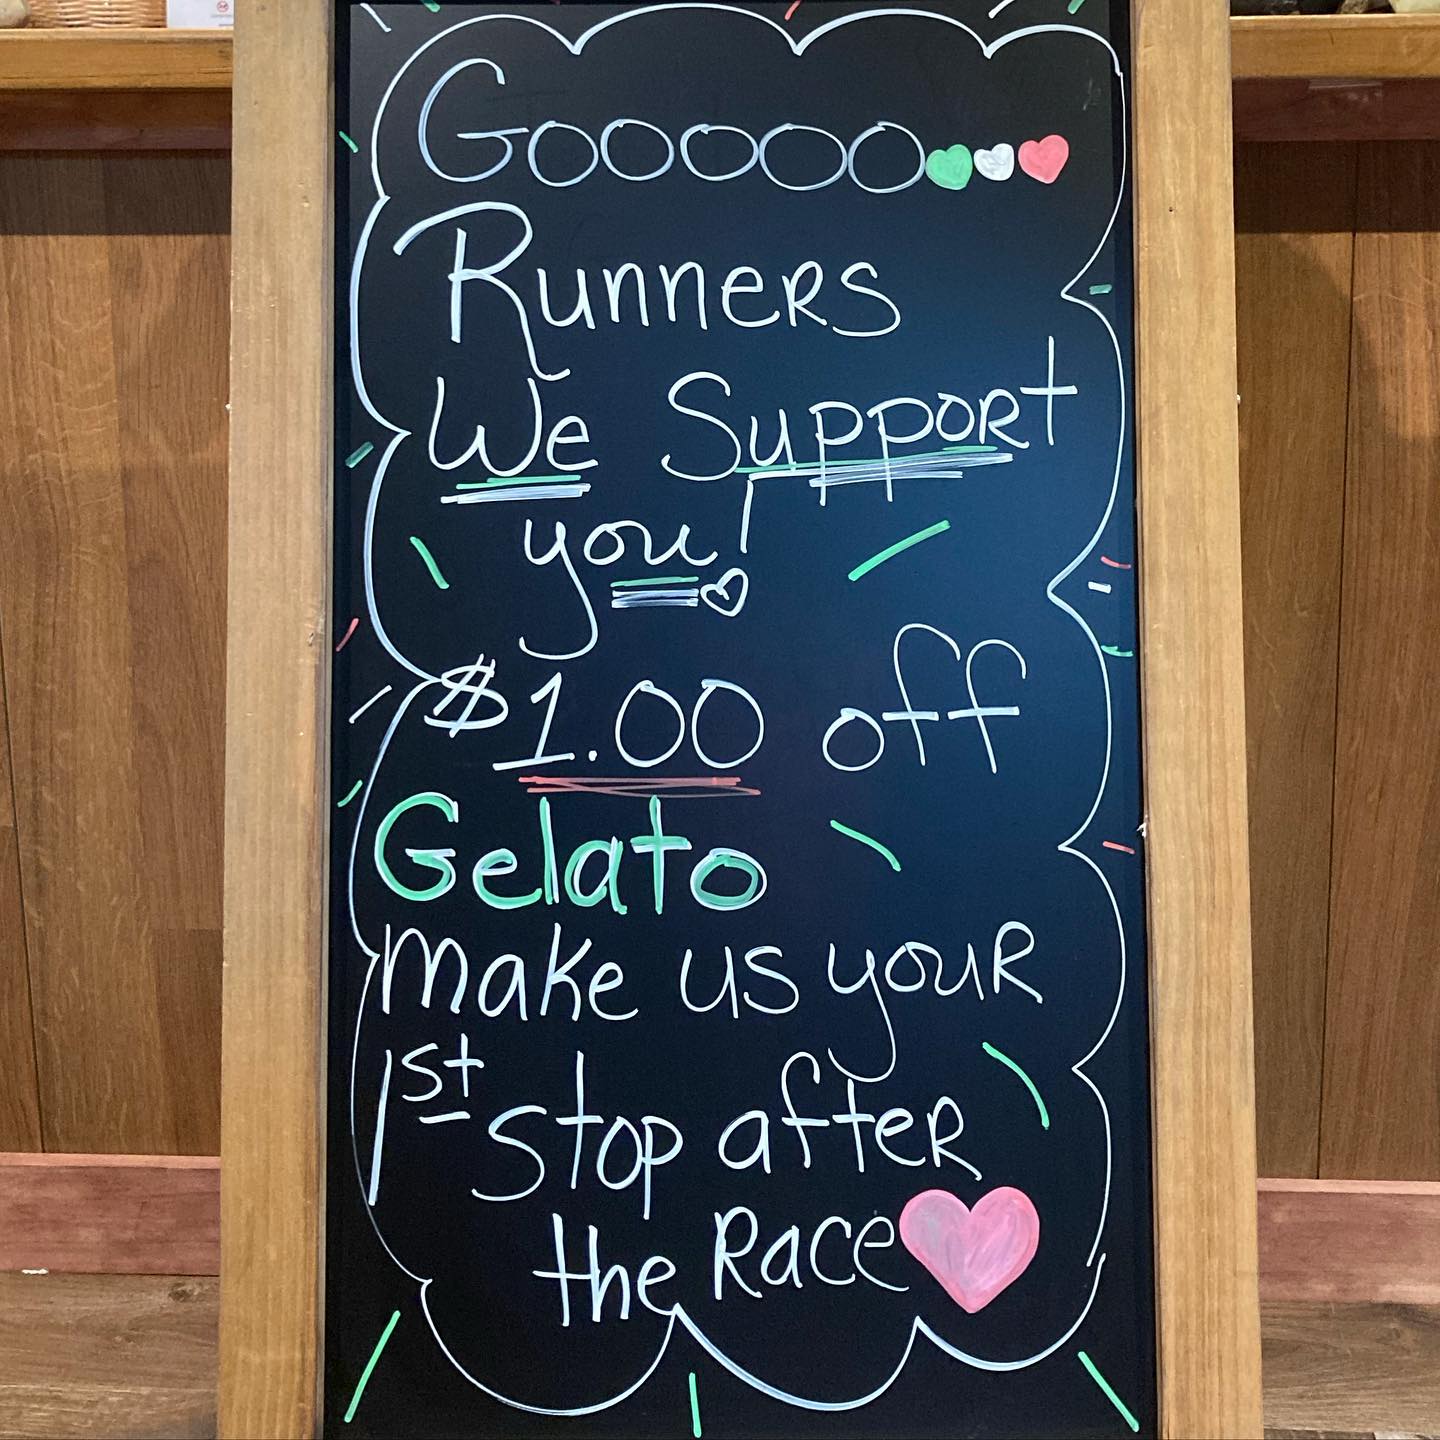 Gooooo
Runners
We Support
you!
$1.00 off
Gelato
make us your
1st stop after
the Race